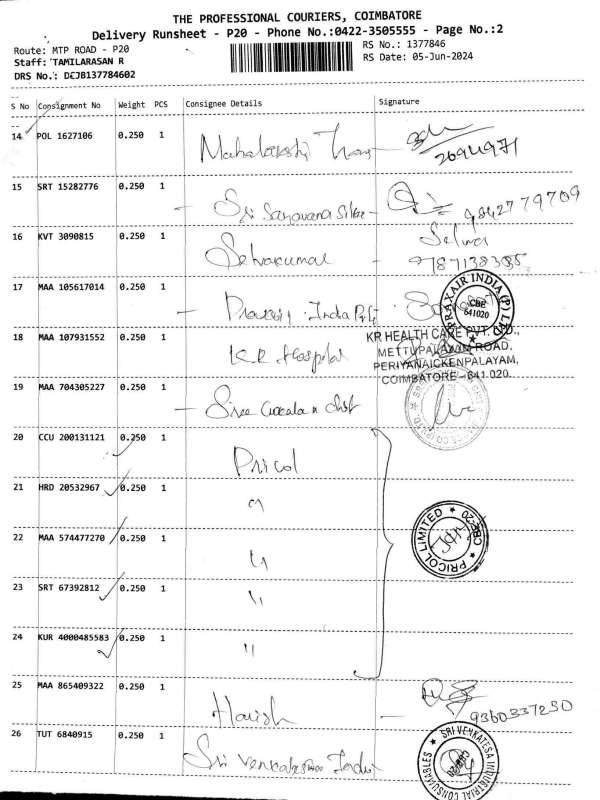 THE PROFESSIONAL COURIERS, COIMBATORE
Delivery Runsheet - P20 - Phone No.:0422-3505555 - Page No.:2
Route: MTP ROAD - P20
RS No.: 1377846
Staff: TAMILARASAN R
RS Date: 05-Jun-2024
DRS No.: DEJB137784602
S No Consignment No Weight PCS Consignee Details Signature
14 POL 1627106 0.250 1
2694971
15 SRT 15282776 0.250 1 Sri Saravana
9842779709
16 KVT 3090815 0.250 1 Selvakumar
9787138385
17 MAA 105617014 0.250 1 India
PRAXAIR INDIA (P) LTD
CBE
641020
18 MAA 107931552 0.250 1 KR Hospital
KR HEALTH CARE PVT. LTD.,
METTUPALAYAM ROAD,
PERIYANAICKENPALAYAM,
COIMBATORE - 641 020.
19 MAA 704305227 0.250 1 Sree
20 CCU 200131121 0.250 1 Pricol
21 HRD 20532967 0.250 1 "
22 MAA 574477270 0.250 1 "
PRICOL LIMITED ★ CBE-20 ★
23 SRT 67392812 0.250 1 "
24 KUR 4000485583 0.250 1 "
25 MAA 865409322 0.250 1 Harish
9360337250
26 TUT 6840915 0.250 1 Sri Venkateswara
SRI VENKATESA INDUSTRIAL CONSUMABLES ★